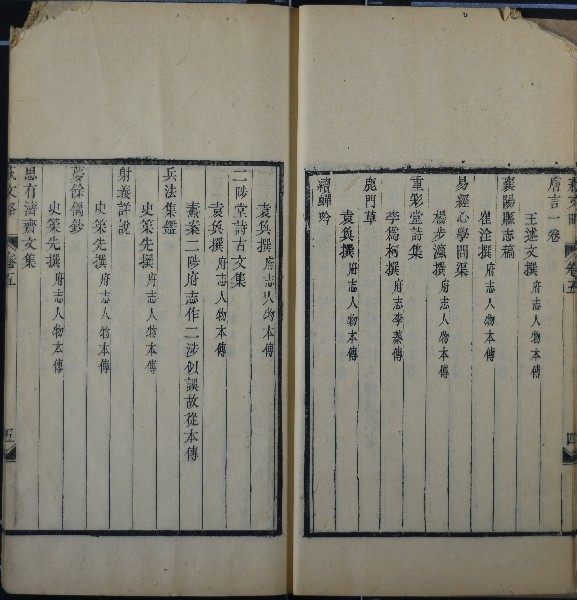 唐言一卷
王述文撰府志人物本傳
襄陽縣志稿
崔淦撰府志人物本傳
易經心學問渠
楊步瀛撰府志人物本傳
重彩堂詩集
李為柯撰府志李蓁傳
鹿門草
袁奐撰府志人物本傳
續蟬吟
卷五
四
袁奐撰府志人物本傳
二陟堂詩古文集
袁奐撰府志人物本傳
素案二陟府志作二涉似誤故從本傳
兵法集鑑
史策先撰府志人物本傳
射義詳說
史策先撰府志人物本傳
夢餘偶鈔
史策先撰府志人物本傳
思有濟齋文集
藝文略
卷五
五